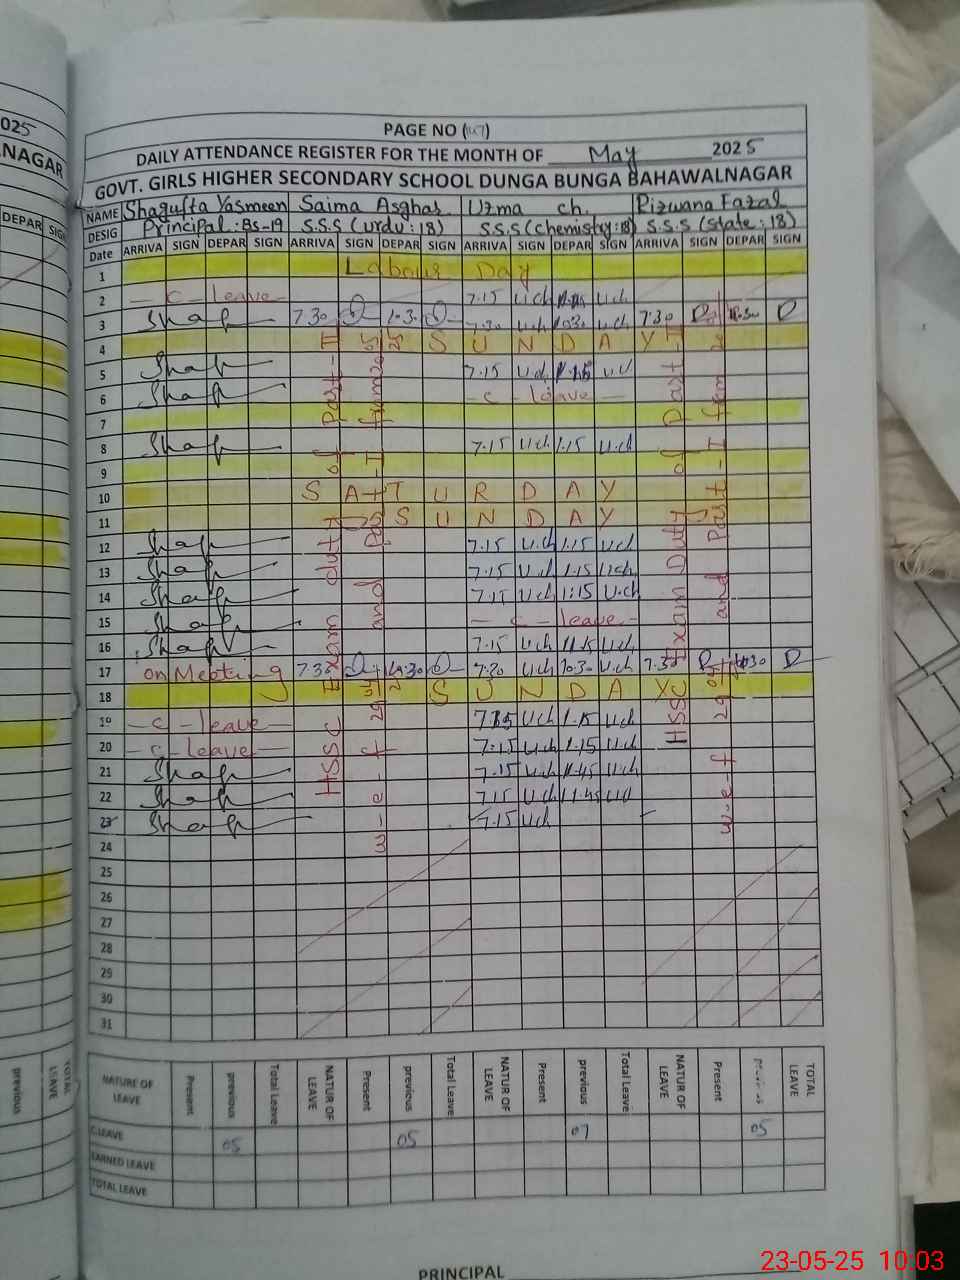 025
NAGAR
DEPAR SIGN
PAGE NO (
DAILY ATTENDANCE REGISTER FOR THE MONTH OF May 2025
GOVT. GIRLS HIGHER SECONDARY SCHOOL DUNGA BUNGA BAHAWALNAGAR
NAME Shagufta Yasmeen Saima Asghar Uzma ch. Rizwana Fazal
DESIG Principal: BS-19 S.S.S (urdu: 18) S.S.S (chemistry: 18) S.S.S (state: 18)
Date ARRIVA SIGN DEPAR SIGN ARRIVA SIGN DEPAR SIGN ARRIVA SIGN DEPAR SIGN ARRIVA SIGN DEPAR SIGN
1 Labour Day
2 - c - leave - 7.15 U.ch U.ch
3 Shag 7.30 10.30 7.30 U.ch 10.30 U.ch 7.30
4 SUNDAY
5 Shag 7.15 U.ch 1.15 U.ch
6 Shag - c - leave -
7
8 Shag 7.15 U.ch 1.15 U.ch
9
10 SATURDAY
11 SUNDAY
12 Shag 7.15 U.ch 1.15 U.ch
13 Shag 7.15 U.ch 1.15 U.ch
14 Shag 7.15 U.ch 1:15 U.ch
15 Shag - c - leave -
16 Shag 7.15 U.ch 11.15 U.ch
17 on Meeting 7.30 10.30 7.30 U.ch 10.30 U.ch 7.30
18 SUNDAY
19 - c - leave - 7.15 U.ch 1.15 U.ch
20 - c - leave - 7.15 U.ch 1.15 U.ch
21 Shag 7.15 U.ch 11.45 U.ch
22 Shag 7.15 U.ch 11.45 U.ch
23 Shag 7.15 U.ch
24
25
26
27
28
29
30
31
HSSC Exam duty of Part-II
and Part-I from
w-e-f
HSSC Exam Duty of Part-II
and Part-I from
w-e-f
NATURE OF LEAVE Present previous Total Leave NATUR OF LEAVE Present previous Total Leave NATUR OF LEAVE Present previous Total Leave NATUR OF LEAVE Present previous TOTAL LEAVE
C.LEAVE 05 05 07 05
EARNED LEAVE
TOTAL LEAVE
previous TOTAL LEAVE
PRINCIPAL
23-05-25 10:03